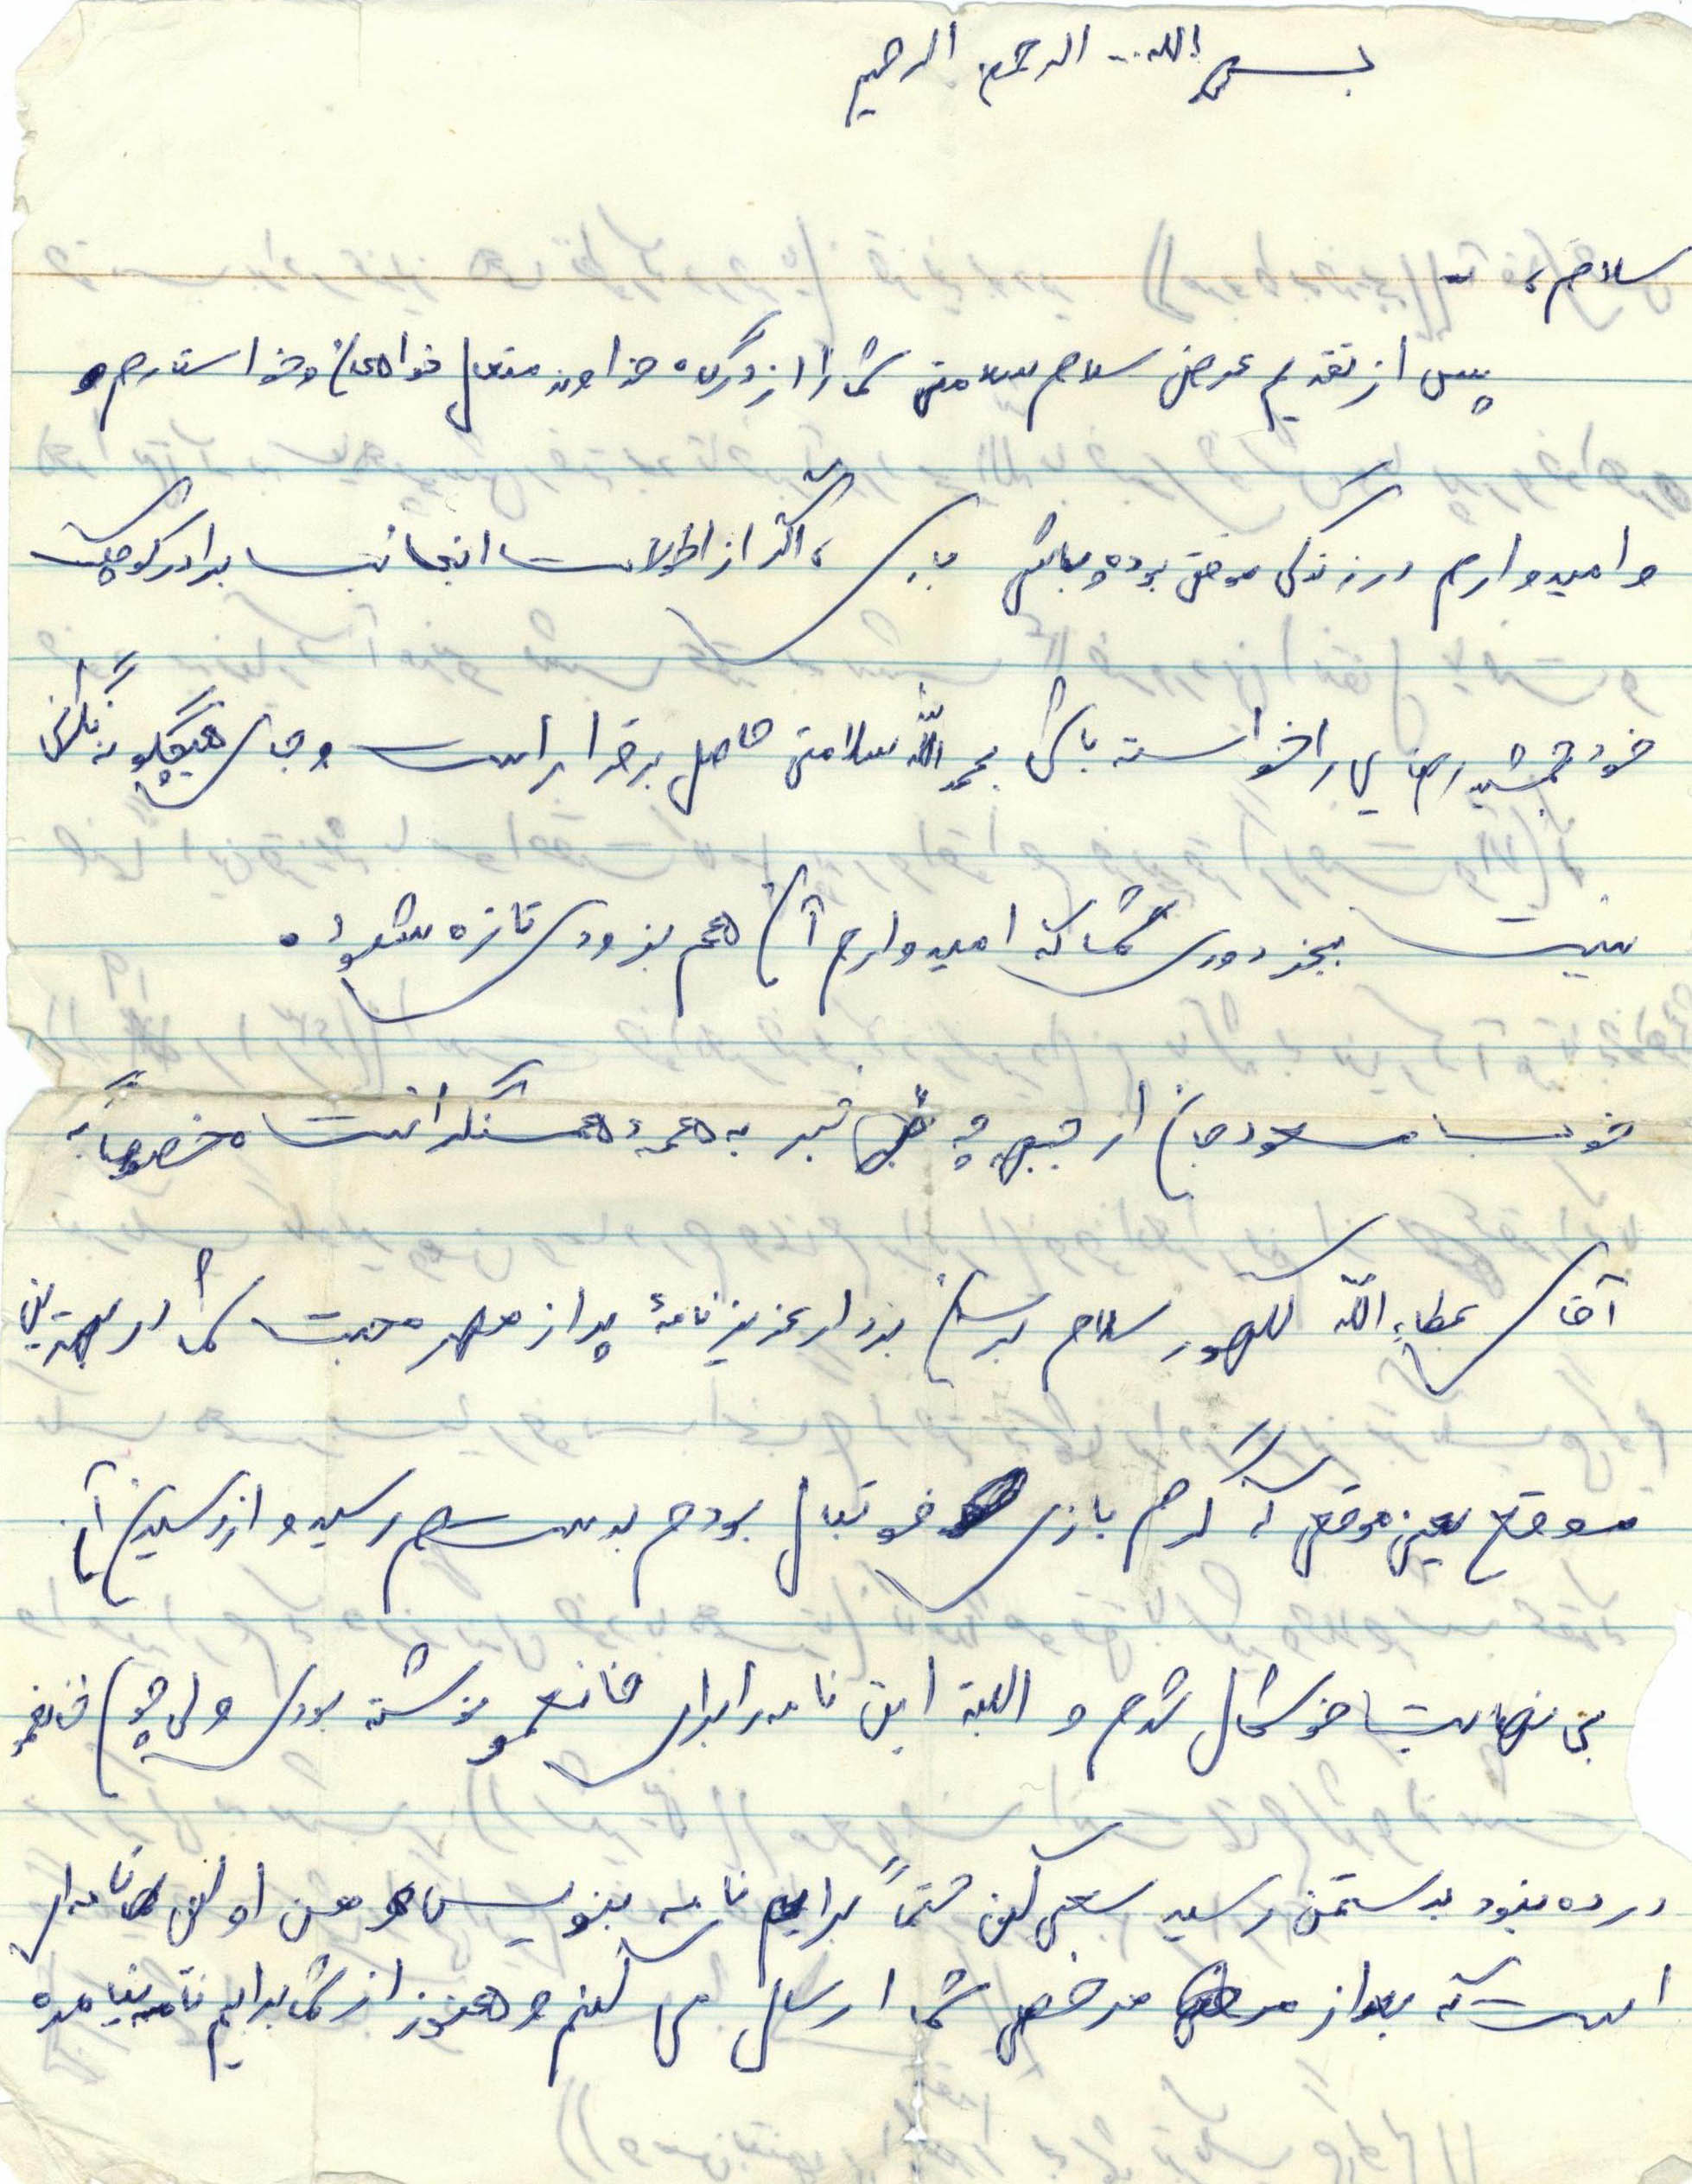 بسم الله الرحمن الرحیم
سلام،
پس از تقدیم عرض سلام سلامتی شما را از درگاه خداوند متعال خواهان و خواستارم
و امیدوارم در زندگی موفق بوده باشی باری، اگر از احوالات اینجانب برادر کوچکت
خود جمشید رضایی را خواسته باشی بحمدالله سلامتی حاصل برقرار است و جای هیچگونه نگرانی
نیست بجز دوری شما که امیدوارم آن هم بزودی تازه شود.
خوب مسعود جان از جبهه چه خبر به همه همسنگرانت مخصوصاً به
آقای عطاء الله سلام برسان برادر عزیز نامه پر از مهر محبت شما در بهترین
موقع یعنی موقعی که گرم بازی فوتبال بودم بدستم رسید و از رسیدن آن
بی نهایت خوشحال شدم و البته این نامه را برای خانعمو نوشته بودی ولی چون خانعمو
در ده نبود بدست من رسید سعی کن حتماً برایم نامه بنویس و من اولین نامه ای
است که بعد از مرخصی شما ارسال می کنم و هنوز از شما برایم نامه نیامده